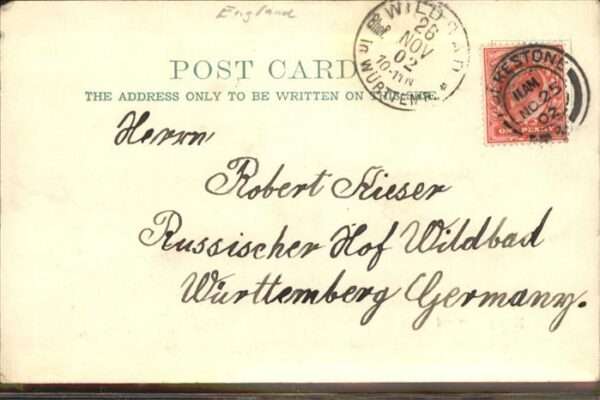 England
WILDBAD
26
NOV
02
10-11V
in WÜRTTEMB.
POST CARD
THE ADDRESS ONLY TO BE WRITTEN ON THIS SIDE
FOLKESTONE
11 AM
NO 25
02
ONE PENNY
Herrn
Robert Kieser
Russischer Hof Wildbad
Württemberg Germany.